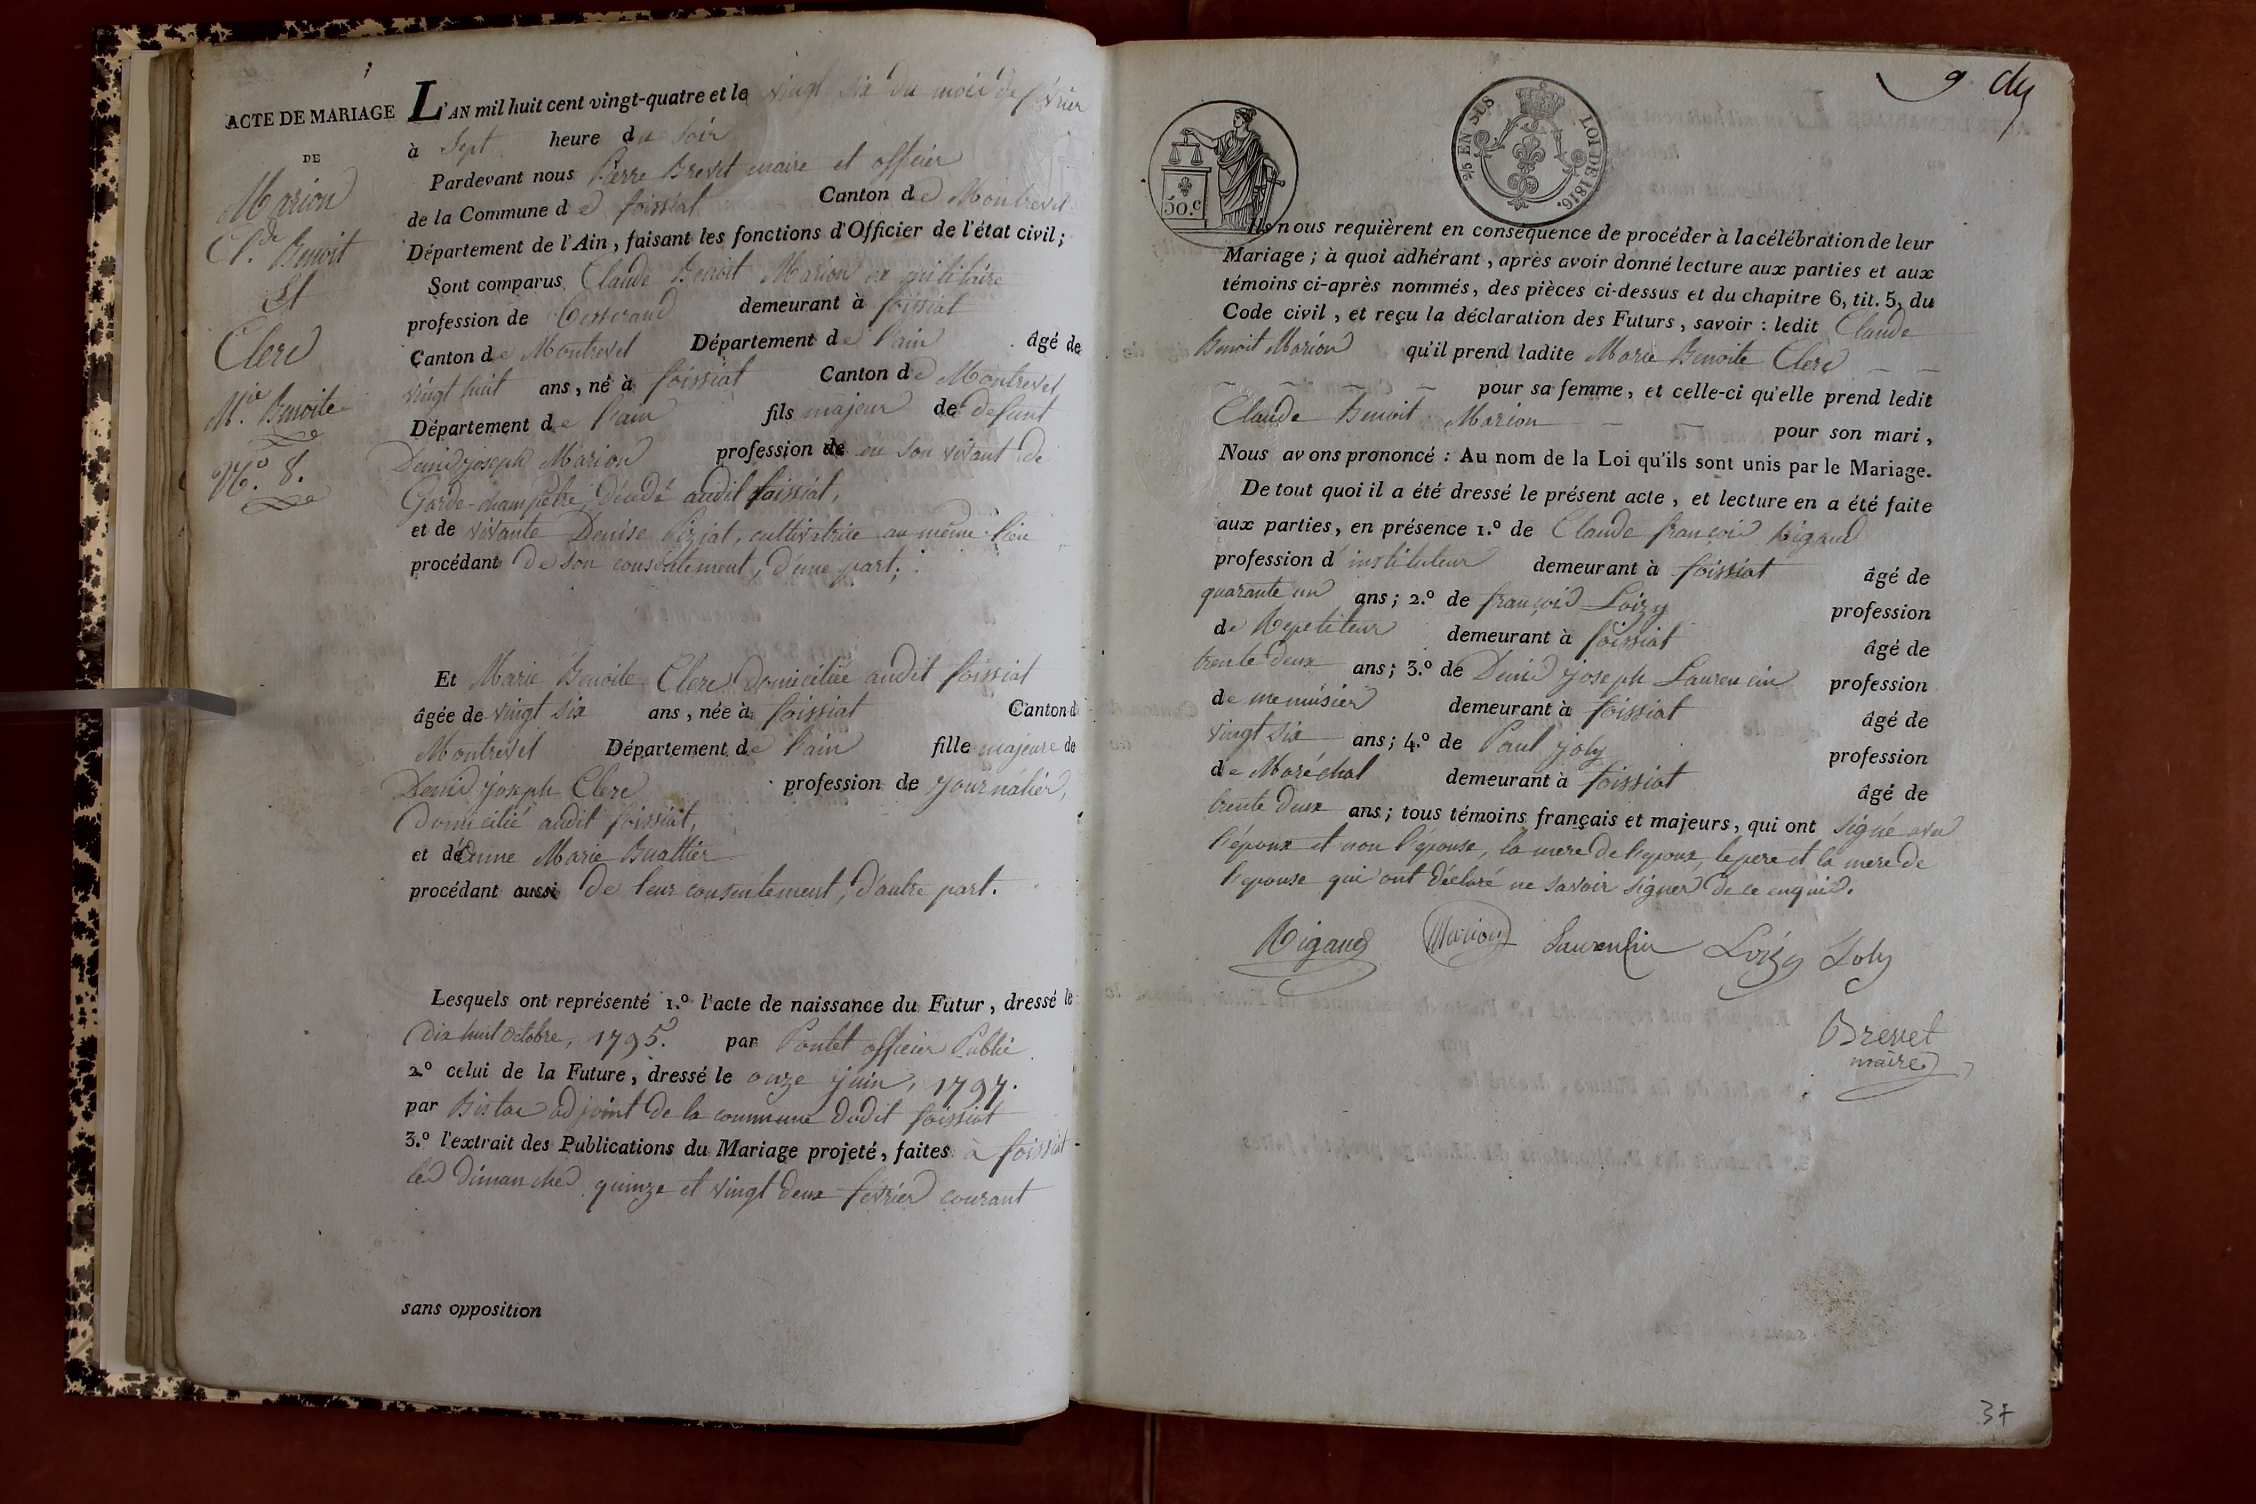 ACTE DE MARIAGE
DE
Marion
Cl.de Benoit
Et
Clerc
M.ie Benoite
N.o 8.
L'AN mil huit cent vingt-quatre et le vingt six du mois de février
à Sept heure du soir
Pardevant nous Pierre Brevet maire et officier
de la Commune de foissiat Canton de Montrevel
Département de l'Ain, faisant les fonctions d'Officier de l'état civil;
Sont comparus Claude Benoit Marion ex militaire
profession de Tisserand demeurant à foissiat
Canton de Montrevel Département de l'ain âgé de
vingt huit ans, né à foissiat Canton de Montrevel
Département de l'ain fils majeur de defunt
Denis joseph Marion profession de en son vivant de
Garde-champêtre, décédé audit foissiat,
et de vivante Denise Pizjat, cultivatrice au même lieu
procédant de son consentement, d'une part;
Et Marie Benoite Clerc domiciliée audit foissiat
âgée de vingt six ans, née à foissiat Canton d
Montrevel Département de l'ain fille majeure de
Denis joseph Clerc profession de journalier,
Domicilié audit foissiat,
et de anne Marie Buattier
procédant aussi de leur consentement, d'autre part.
Lesquels ont représenté 1.o l'acte de naissance du Futur, dressé le
Dix huit octobre, 1795. par Pontet officier Public
2.o celui de la Future, dressé le onze juin, 1797.
par Bistac adjoint de la commune dudit foissiat
3.o l'extrait des Publications du Mariage projeté, faites à foissiat
les dimanches quinze et vingt deux février courant
sans opposition
9
50.c
%5 EN SUS LOI DE 1816.
Ils nous requièrent en conséquence de procéder à la célébration de leur
Mariage; à quoi adhérant, après avoir donné lecture aux parties et aux
témoins ci-après nommés, des pièces ci-dessus et du chapitre 6, tit. 5, du
Code civil, et reçu la déclaration des Futurs, savoir: ledit Claude
Benoit Marion qu'il prend ladite Marie Benoite Clerc
pour sa femme, et celle-ci qu'elle prend ledit
Claude Benoit Marion pour son mari,
Nous avons prononcé: Au nom de la Loi qu'ils sont unis par le Mariage.
De tout quoi il a été dressé le présent acte, et lecture en a été faite
aux parties, en présence 1.o de Claude françois Rigaud
profession d'instituteur demeurant à foissiat âgé de
quarante un ans; 2.o de françois Loizy profession
de Repetiteur demeurant à foissiat âgé de
trente deux ans; 3.o de Denis joseph Laurencin profession
de menuisier demeurant à foissiat âgé de
vingt six ans; 4.o de Paul joly profession
de Maréchal demeurant à foissiat âgé de
trente deux ans; tous témoins français et majeurs, qui ont signé avec
l'époux et non l'épouse, la mere de l'epoux, le pere et la mere de
l'epouse qui ont déclaré ne savoir signer de ce enquis.
Rigaud Marion Laurencin Loizy Joly
Brevet
maire
37